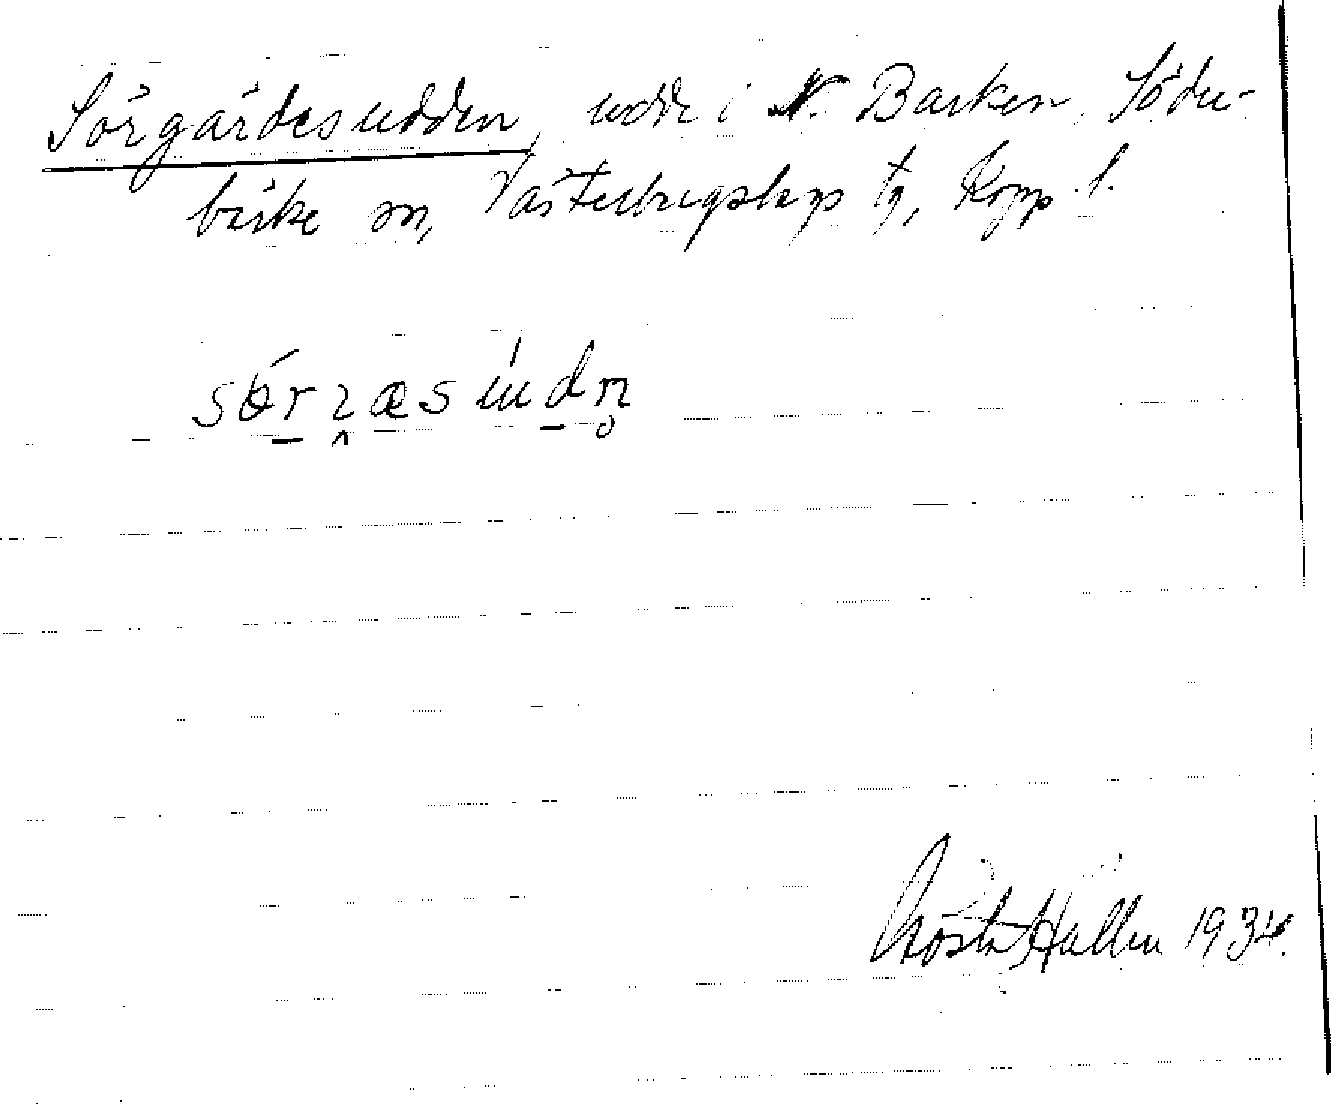 Sörgärdesudden, udde i N. Barken, Söder-
bärke sn, Västerbergslags tg, Kopp. l.
Gösta Hallén 1934.